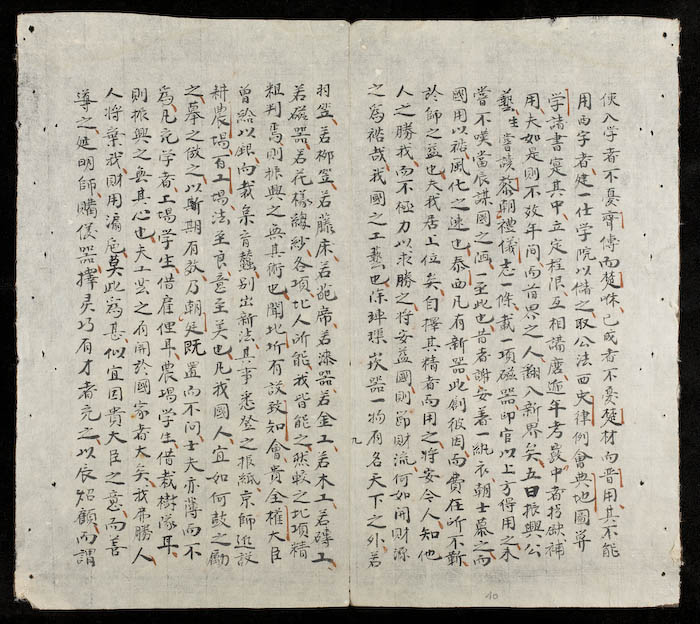 使入学者不憂齊傅而楚咻已成者不憂楚材而晋用其不能
用西字者建一仕学院以儲之取公法西史律例會典地圖并
学諸書寔其中立定程限互相講磨逾年考覈中者授缺補
用夫如是則不效年間而舊界之人翻入新界矣五曰振興公
藝生嘗讀黎朝禮儀志一條載一項磁器即官以上方得用之未
嘗不嘆當辰謀國之陋一至此也昔者謝安著一紈衣朝士慕之而
國用以裕風化之速也泰西凡有新器此創彼因而費在所不靳
於師之益也夫我居上位矣自擇其精者而用之將安令人知他
人之勝我而不極力以求勝之將安益國則節財流何如開財源
之為裕哉我國之工藝也除璖嵌器一物有名天下之外若
九
羽笠若柳笠若藤床若葩席若漆器若金工若木工若磚工
若磁器若花樣縐紗各項北人所能我皆能之然較之北項精
粗判焉則振興之無其術也聞北圻有設致知會貴全權大臣
曽給以銀而栽桑育蠶别出新法其事悉登之报紙京師近設
耕農場有工場法至良意至美也凡我國人宜如何鼓之勵
之摹之倣之以斯期有效乃朝廷既置而不問士夫亦薄而不
為凡充学者工場学生借雇俚耳農場学生借栽樹隊耳
則振興之無其心也夫工藝之有関於國家者大矣我弗勝人
人將棄我財用漏巵莫此為甚似宜因貴大臣之意而善
導之延明師購儀器擇灵巧有才者充之以辰炤顧而謂
40